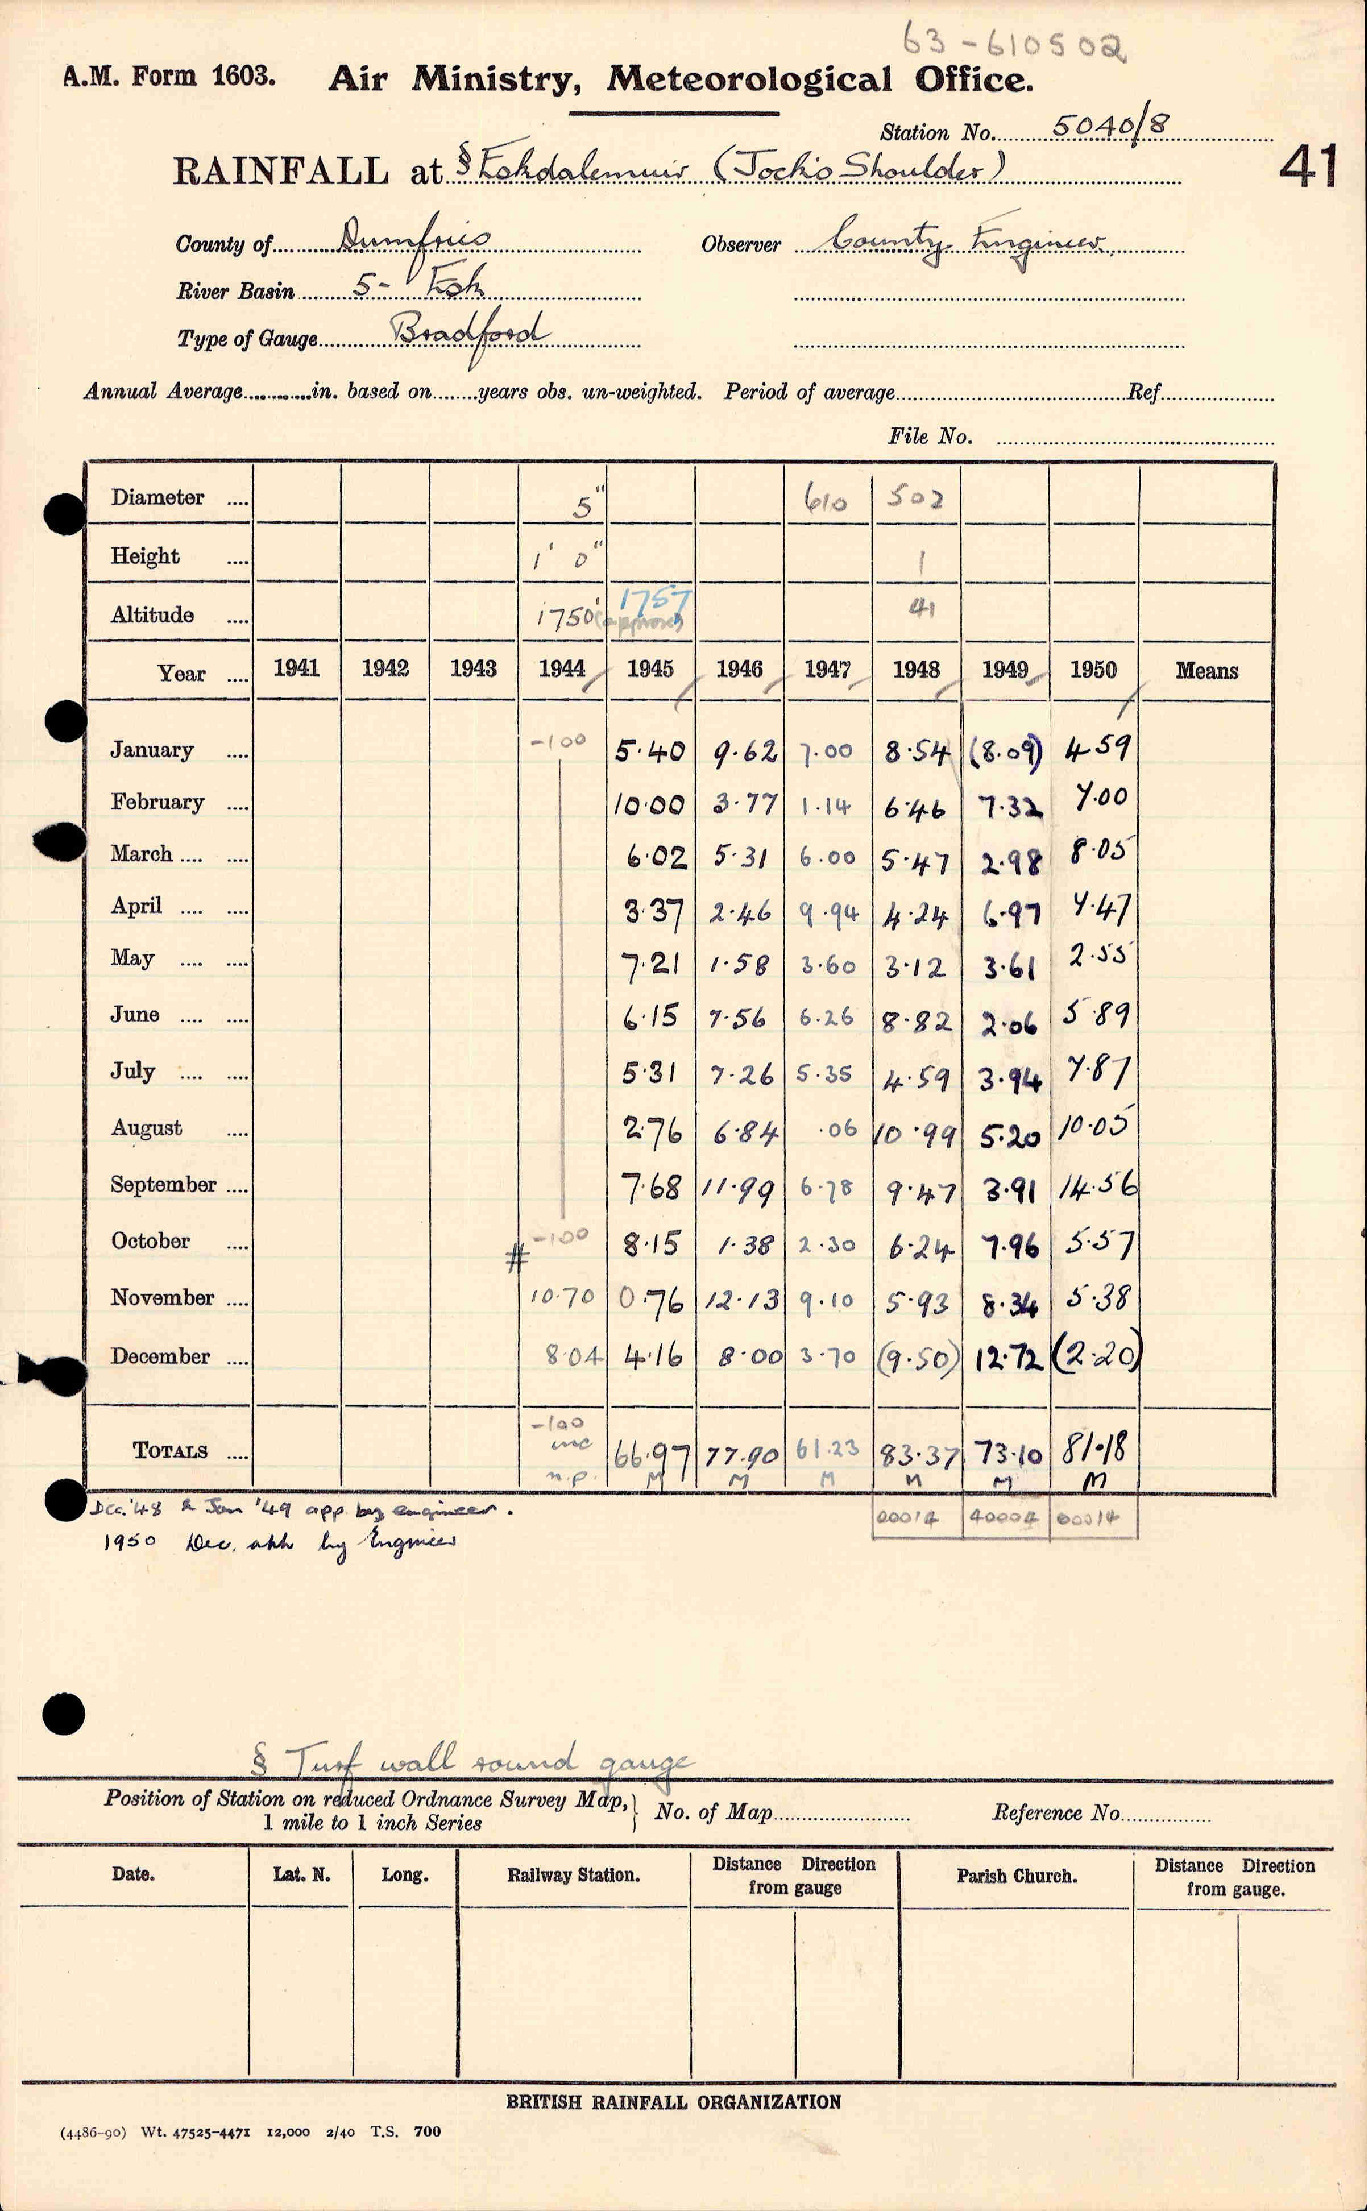 63-610502
A.M. Form 1603. Air Ministry, Meteorological Office.
Station No. 5040/8
RAINFALL at § Eskdalemuir (Jock's Shoulder)
41
County of Dumfries Observer County Engineer
River Basin 5- Esk
Type of Gauge Bradford
Annual Average in. based on years obs. un-weighted. Period of average Ref.
File No.
Diameter .... 5" 610 502
Height .... 1' 0" 1
Altitude .... 1750' (approx) 1757 41
Year .... 1941 1942 1943 1944 1945 1946 1947 1948 1949 1950 Means
January .... -100 5.40 9.62 7.00 8.54 (8.09) 4.59
February .... 10.00 3.77 1.14 6.46 7.32 7.00
March .... .... 6.02 5.31 6.00 5.47 2.98 8.05
April .... .... 3.37 2.46 9.94 4.24 6.97 7.47
May .... .... 7.21 1.58 3.60 3.12 3.61 2.55
June .... .... 6.15 7.56 6.26 8.82 2.06 5.89
July .... .... 5.31 7.26 5.35 4.59 3.94 7.87
August .... 2.76 6.84 .06 10.99 5.20 10.05
September .... 7.68 11.99 6.78 9.47 3.91 14.56
October .... # -100 8.15 1.38 2.30 6.24 7.96 5.57
November .... 10.70 0.76 12.13 9.10 5.93 8.34 5.38
December .... 8.04 4.16 8.00 3.70 (9.50) 12.72 (2.20)
TOTALS .... -100 inc n.p. 66.97 77.90 61.23 83.37 73.10 81.18
M M M M M M
00014 40004 60014
Dec. '48 & Jan '49 app by engineer.
1950 Dec. by Engineer
§ Turf wall round gauge
Position of Station on reduced Ordnance Survey Map, 1 mile to 1 inch Series } No. of Map Reference No.
Date. Lat. N. Long. Railway Station. Distance Direction from gauge Parish Church. Distance Direction from gauge.
BRITISH RAINFALL ORGANIZATION
(4486-90) Wt. 47525-4471 12,000 2/40 T.S. 700